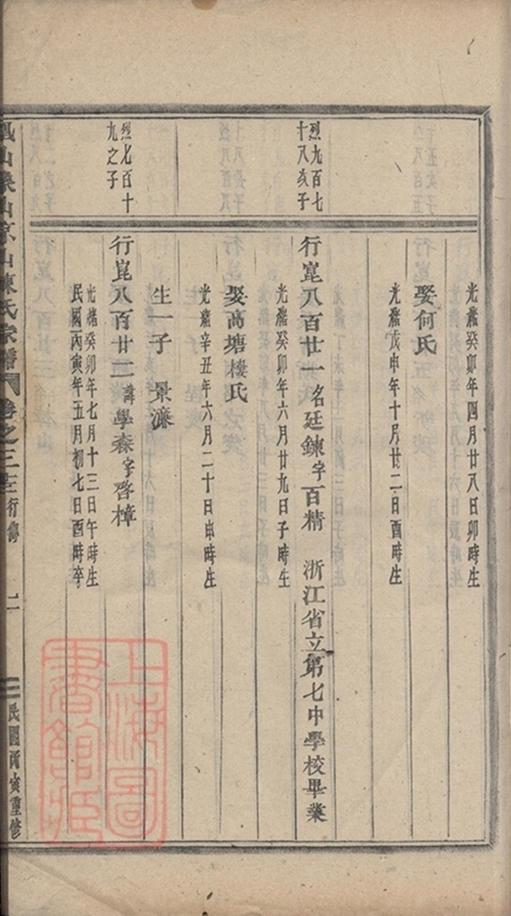 光緒癸卯年四月廿八日卯時生
娶何氏
光緒戊申年十月廿二日酉時生
烈九百七
十八次子
行崑八百廿一名廷鍊字百精 浙江省立第七中學校畢業
光緒癸卯年六月廿九日子時生
娶高塘樓氏
光緒辛丑年六月二十日申時生
生一子 景濂
烈七百十
九之子
行崑八百廿二諱學森字啓樟
光緒癸卯年七月十三日午時生
民國丙寅年五月初七日酉時卒
山陳氏宗譜 卷之三 行傳 二 民國丙寅重修
上海圖
書館藏